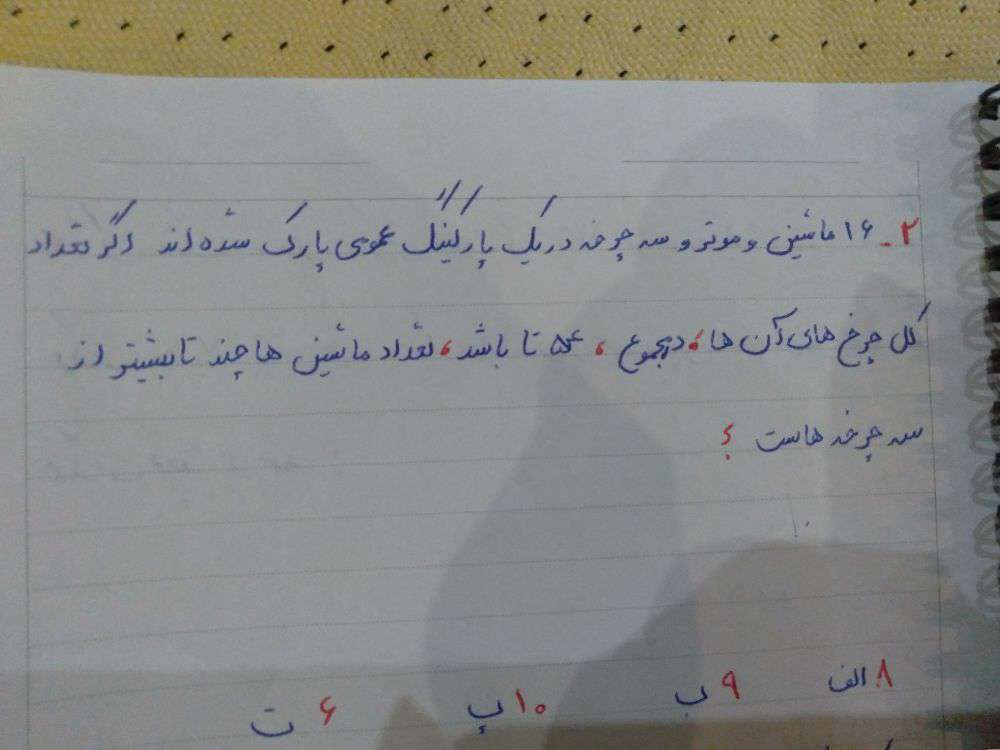 ۲ـ ۱۶ ماشین و موتور و سه چرخه در یک پارکینگ عمومی پارک شده اند اگر تعداد
کل چرخ های آن ها، در مجموع، تا باشد، تعداد ماشین ها چند تا بیشتر از
سه چرخه هاست ؟
الف ۸ ب ۹ پ ۱۰ ت ۶